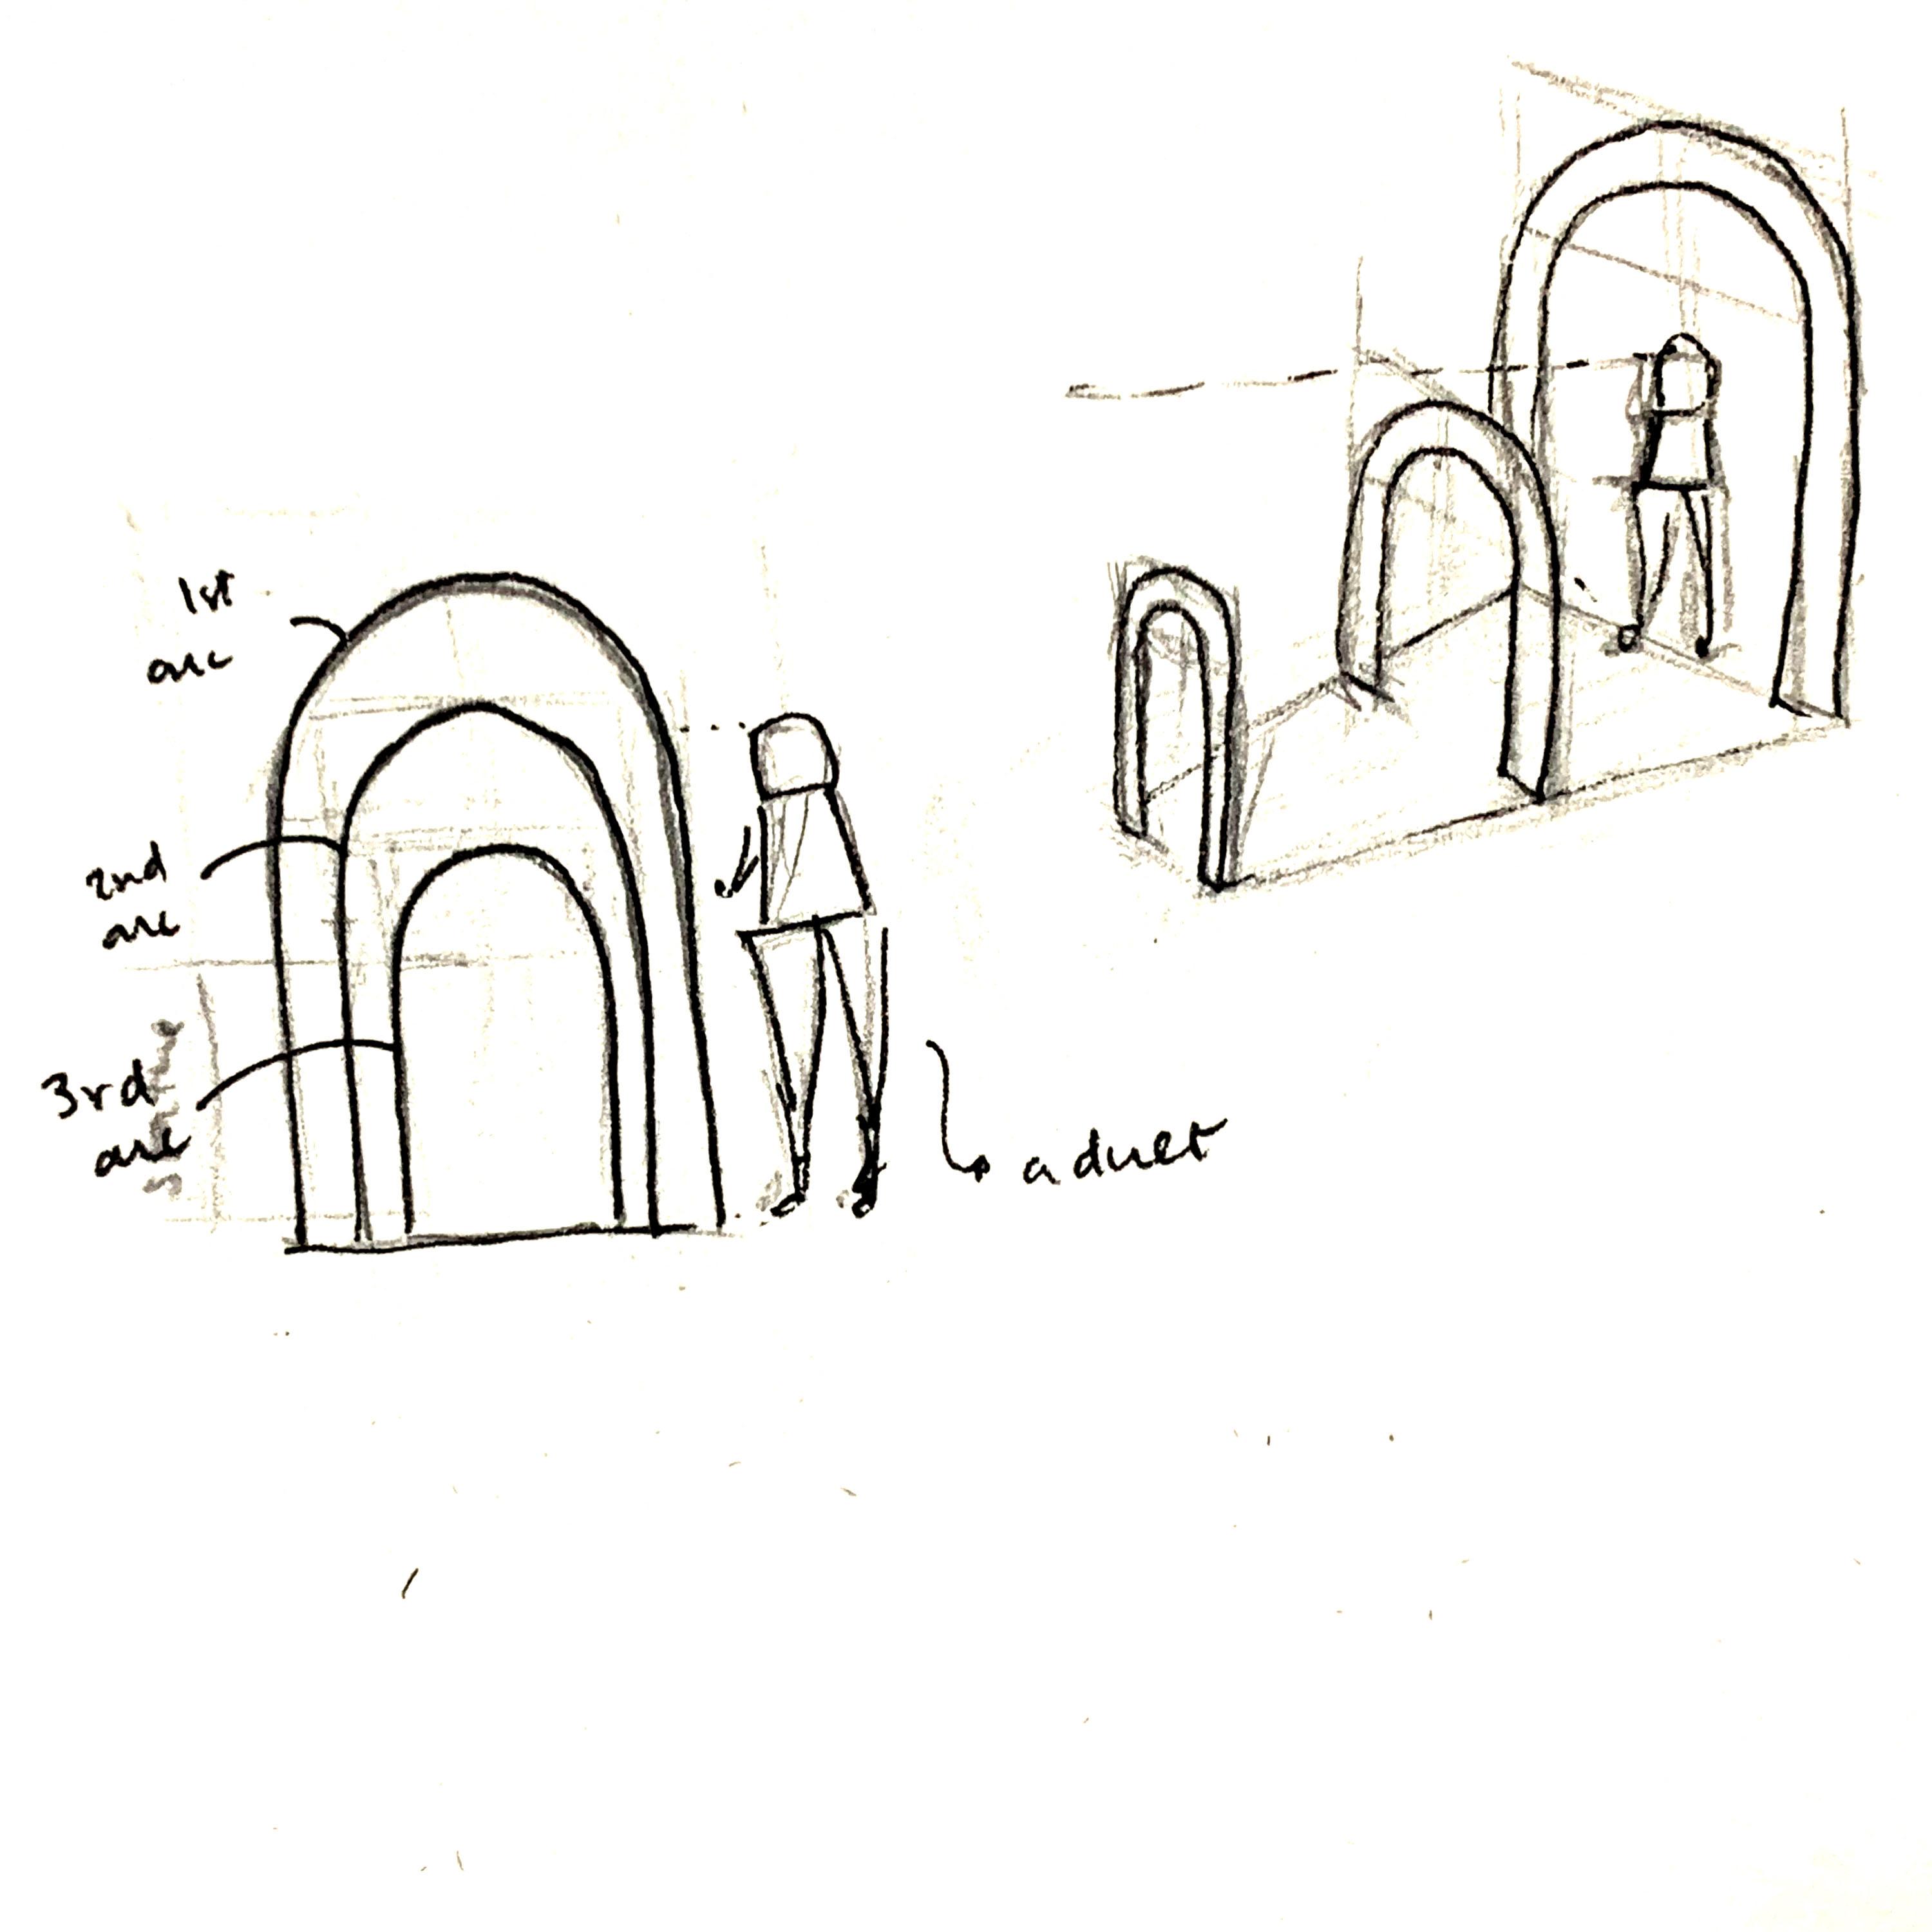 1st
arc
2nd
arc
3rd
arc
adult